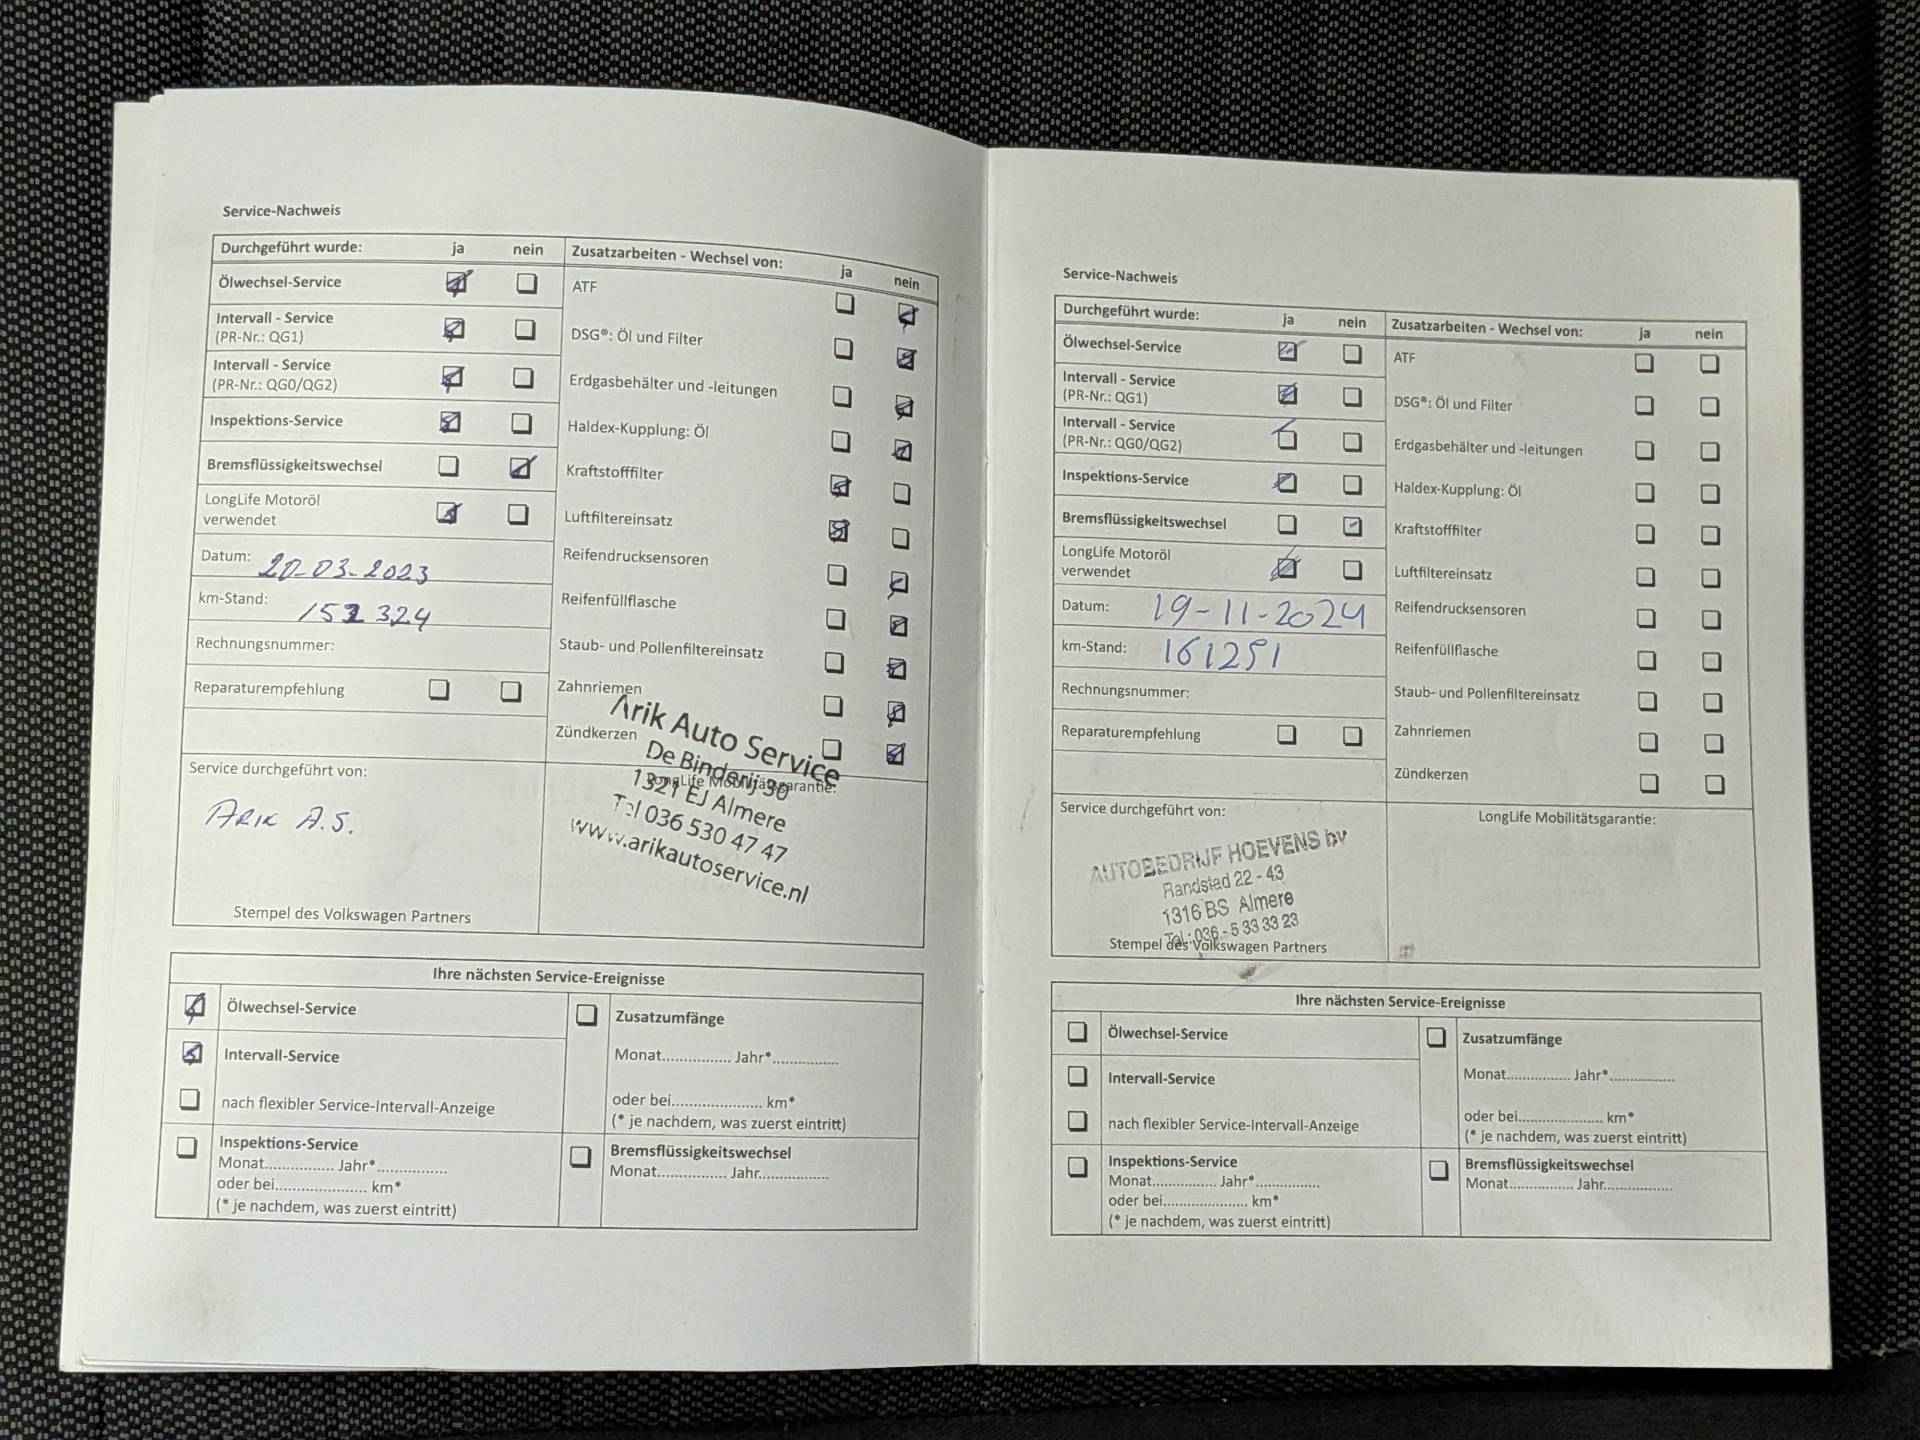 Service-Nachweis
Durchgeführt wurde: ja nein
Ölwechsel-Service
Intervall - Service
(PR-Nr.: QG1)
Intervall - Service
(PR-Nr.: QG0/QG2)
Inspektions-Service
Bremsflüssigkeitswechsel
LongLife Motoröl
verwendet
Datum: 20-03-2023
km-Stand: 152 324
Rechnungsnummer:
Reparaturempfehlung
Zusatzarbeiten - Wechsel von: ja nein
ATF
DSG®: Öl und Filter
Erdgasbehälter und -leitungen
Haldex-Kupplung: Öl
Kraftstofffilter
Luftfiltereinsatz
Reifendrucksensoren
Reifenfüllflasche
Staub- und Pollenfiltereinsatz
Zahnriemen
Zündkerzen
Service durchgeführt von:
ARIK A.S.
Stempel des Volkswagen Partners
LongLife Mobilitätsgarantie:
Arik Auto Service
De Binderij 30
1321 EJ Almere
Tel 036 530 47 47
www.arikautoservice.nl
Ihre nächsten Service-Ereignisse
Ölwechsel-Service
Intervall-Service
nach flexibler Service-Intervall-Anzeige
Inspektions-Service
Monat................ Jahr*................
oder bei...................... km*
(* je nachdem, was zuerst eintritt)
Zusatzumfänge
Monat................ Jahr*................
oder bei...................... km*
(* je nachdem, was zuerst eintritt)
Bremsflüssigkeitswechsel
Monat................ Jahr................
Service-Nachweis
Durchgeführt wurde: ja nein
Ölwechsel-Service
Intervall - Service
(PR-Nr.: QG1)
Intervall - Service
(PR-Nr.: QG0/QG2)
Inspektions-Service
Bremsflüssigkeitswechsel
LongLife Motoröl
verwendet
Datum: 19-11-2024
km-Stand: 161251
Rechnungsnummer:
Reparaturempfehlung
Zusatzarbeiten - Wechsel von: ja nein
ATF
DSG®: Öl und Filter
Erdgasbehälter und -leitungen
Haldex-Kupplung: Öl
Kraftstofffilter
Luftfiltereinsatz
Reifendrucksensoren
Reifenfüllflasche
Staub- und Pollenfiltereinsatz
Zahnriemen
Zündkerzen
Service durchgeführt von:
AUTOBEDRIJF HOEVENS bv
Randstad 22 - 43
1316 BS Almere
Tel.: 036 - 5 33 33 23
Stempel des Volkswagen Partners
LongLife Mobilitätsgarantie:
Ihre nächsten Service-Ereignisse
Ölwechsel-Service
Intervall-Service
nach flexibler Service-Intervall-Anzeige
Inspektions-Service
Monat................ Jahr*................
oder bei...................... km*
(* je nachdem, was zuerst eintritt)
Zusatzumfänge
Monat................ Jahr*................
oder bei...................... km*
(* je nachdem, was zuerst eintritt)
Bremsflüssigkeitswechsel
Monat................ Jahr................